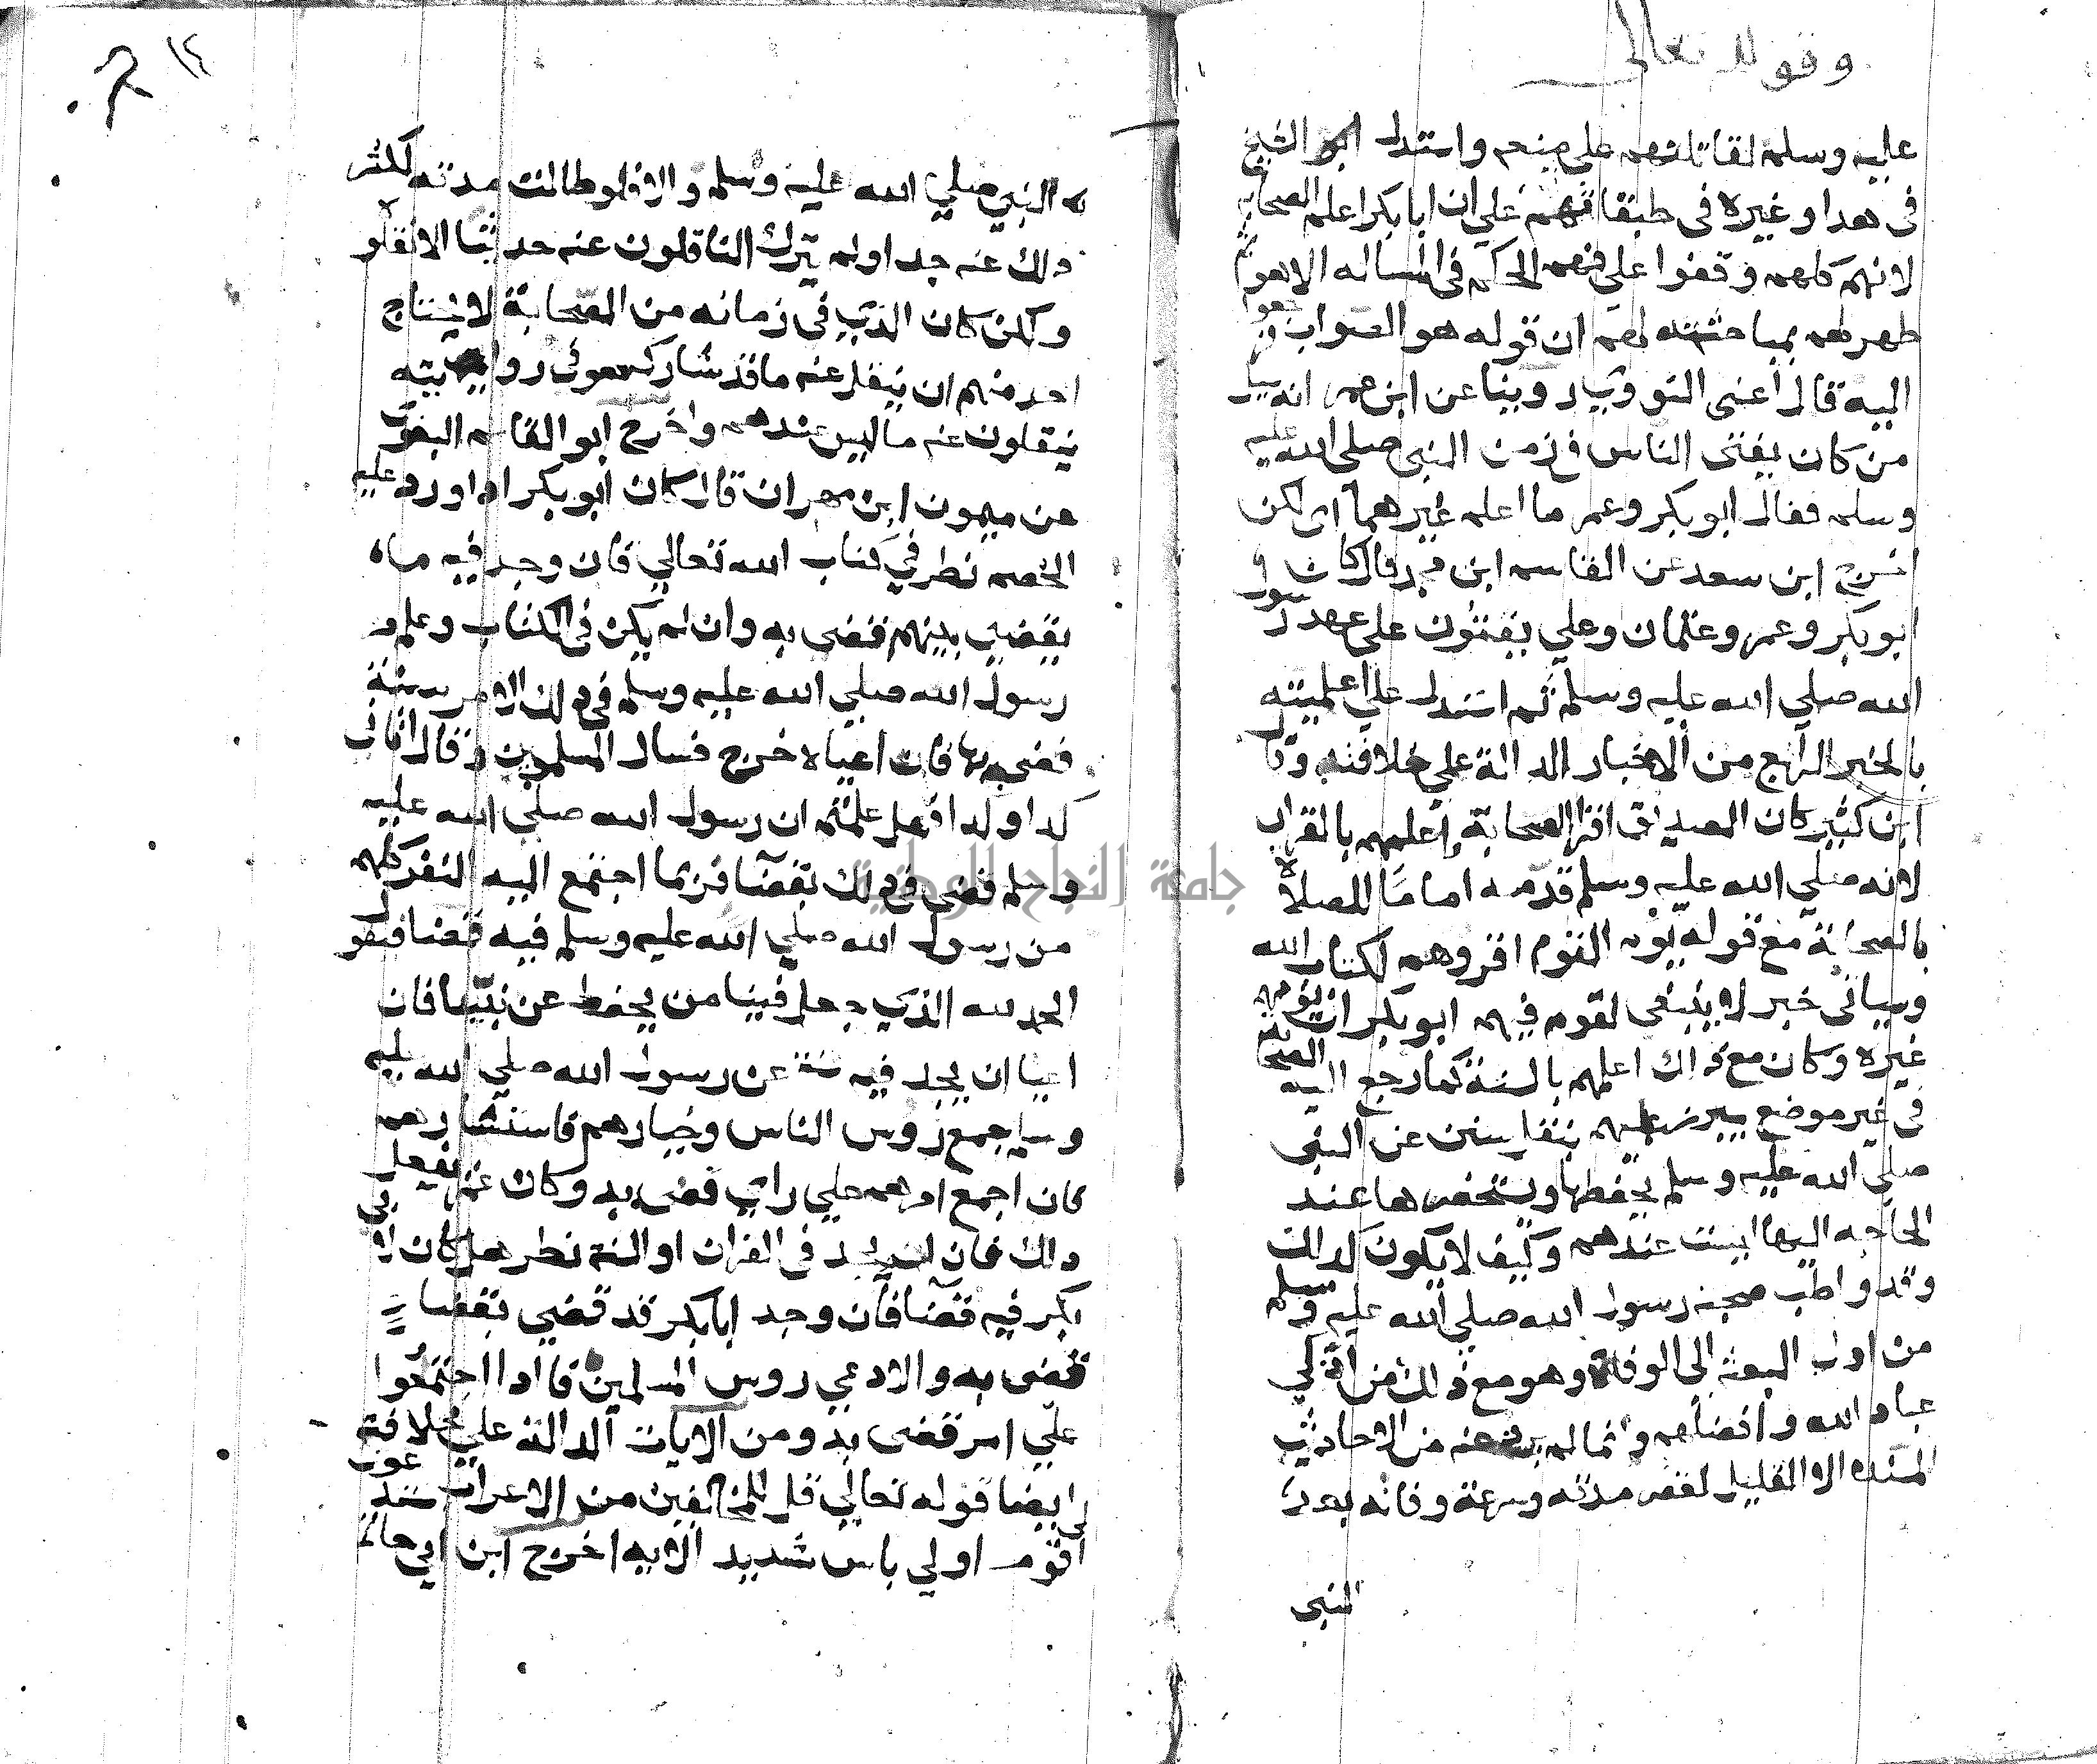 وقوله تعالى
عليه وسلم لقاتلتهم على منعه واستدل الشيخ
فى هدا وغيره فى طبقاتهم على ان ابا بكر اعلم الصحابه
لانهم كلهم وقفوا على فهم الحكم فى المساله الا هو
طهر لهم بمباحثته لهم ان قوله هو الصواب فرجعوا
اليه قال اعنى النووي روينا عن ابن عمر انه سيل
من كان يفتى الناس فى زمن النبى صلى الله عليه
وسلم فقال ابو بكر وعمر ما اعلم غيرهما اى لكن
اخرج ابن سعد عن القاسم ابن محمد قال كان
ابو بكر وعمر وعثمان وعلي يفتون على عهد رسول
الله صلي الله عليه وسلم ثم استدل علي اعلميته
بالخبر الرابع من الاخبار الدالة علي خلافته وقال
ابن كثير كان الصديق اقرا الصحابة اعلمهم بالقران
لانه صلي الله عليه وسلم قدمه اماما للصلاة
بالصحابة مع قوله يوم القوم اقروهم لكتاب الله
وسياتى خبر لا ينبغى لقوم فيهم ابو بكر ان يومهم
غيره وكان مع ذلك اعلمهم بالسنة كما رجع اليه الصحابة
فى غير موضع يبرز عليهم بنقل سنن عن النبى
صلي الله عليه وسلم يحفظها ويستحضرها عند
الحاجه اليها ليست عندهم وكيف لا يكون كدلك
وقد واطب صحبة رسول الله صلي الله عليه وسلم
من اول البعثة الى الوفاة وهو مع ذلك من اذكي
عباد الله وافضلهم وانما لم يرو عنه من الاحاديث
المسنده الا القليل لقصر مدته وسرعة وفاته بعد
النبى
١٤
النبي صلي الله عليه وسلم والا فلو طالت مدته لكثر
دلك عنه جدا ولم يترك الناقلون عنه حديثا الا نقلو
ولكن كان الذي في زمانه من الصحابة لا يحتاج
احد منهم ان ينقل عنه ما قد شاركهو فى روايته
ينقلون عنه ما ليس عندهم واخرج ابو القاسم البغوي
عن ميمون ابن مهران قال كان ابو بكر ادا ورد عليه
الخصم نطر في كتاب الله تعالي فان وجد فيه ما
يقضي بينهم قضى به وان لم يكن فى الكتاب وعلم
رسول الله صلي الله عليه وسلم في دلك الامر سنة
قضى بها فان اعياه خرج فسال المسلمين وقال اتاني
كدا وكدا فهل علمتم ان رسول الله صلي الله عليه
وسلم قضي في دلك بقضآ فربما اجتمع اليه النفر كلهم
من رسول الله صلي الله عليه وسلم فيه قضا فيقول
الحمد لله الذي جعل فينا من يحفط عن نبينا فان
اعيا ان يجد فيه سنة عن رسول الله صلي الله عليه
وسلم جمع روس الناس وخيارهم فاستشارهم
فان اجمع امرهم علي راي قضى به وكان عمر يفعل
دلك فان لم يجد فى القران او السنة نطر هل كان لابي
بكر فيه قضآ فان وجد ابا بكر قد قضي بقضا
قضى به والا دعي روس المسلمين فادا اجتمعوا
علي امر قضى به ومن الايات الدالة علي خلافته
ايضا قوله تعالي قل للمخلفين من الاعراب ستدعون
الي قوم اولي باس شديد الايه اخرج ابن ابي حاتم
جامعة النجاح الوطنية